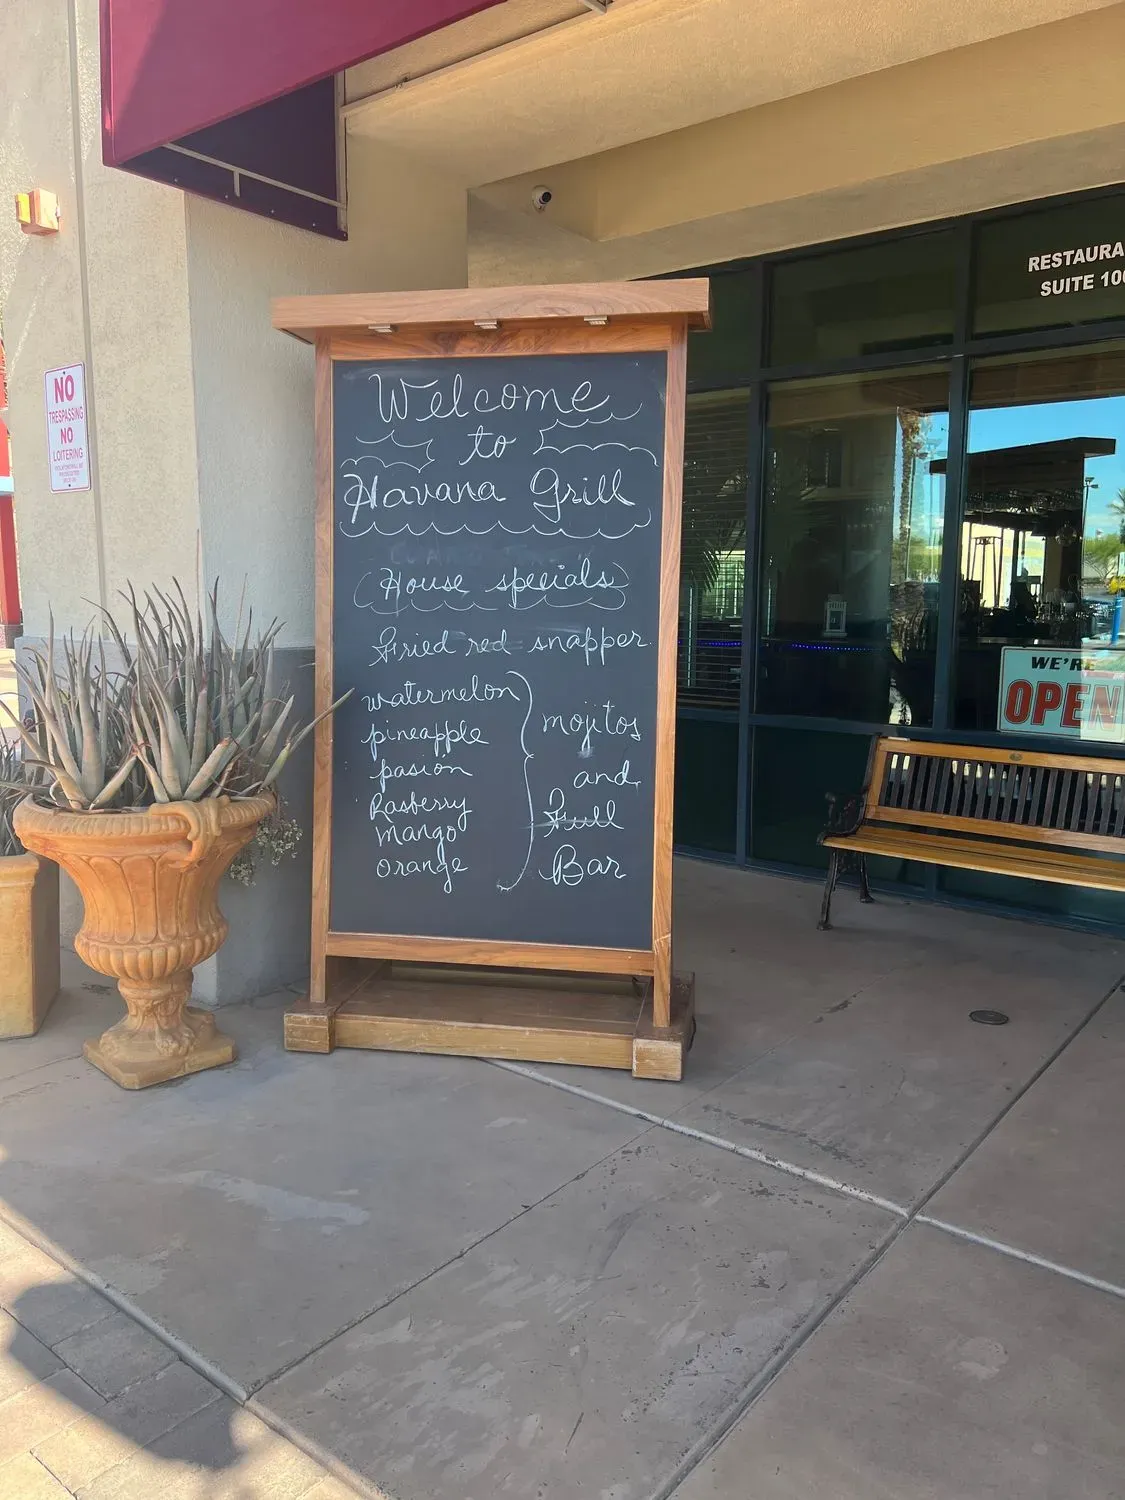 NO
TRESPASSING
NO
LOITERING
RESTAURA
SUITE 100
Welcome
to
Havana Grill
House specials
Fried red snapper
watermelon
pineapple
pasion
Rasberry
mango
orange
mojitos
and
Full
Bar
WE'RE
OPEN